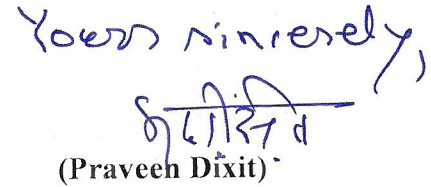 Yours sincerely,
(Praveen Dixit)